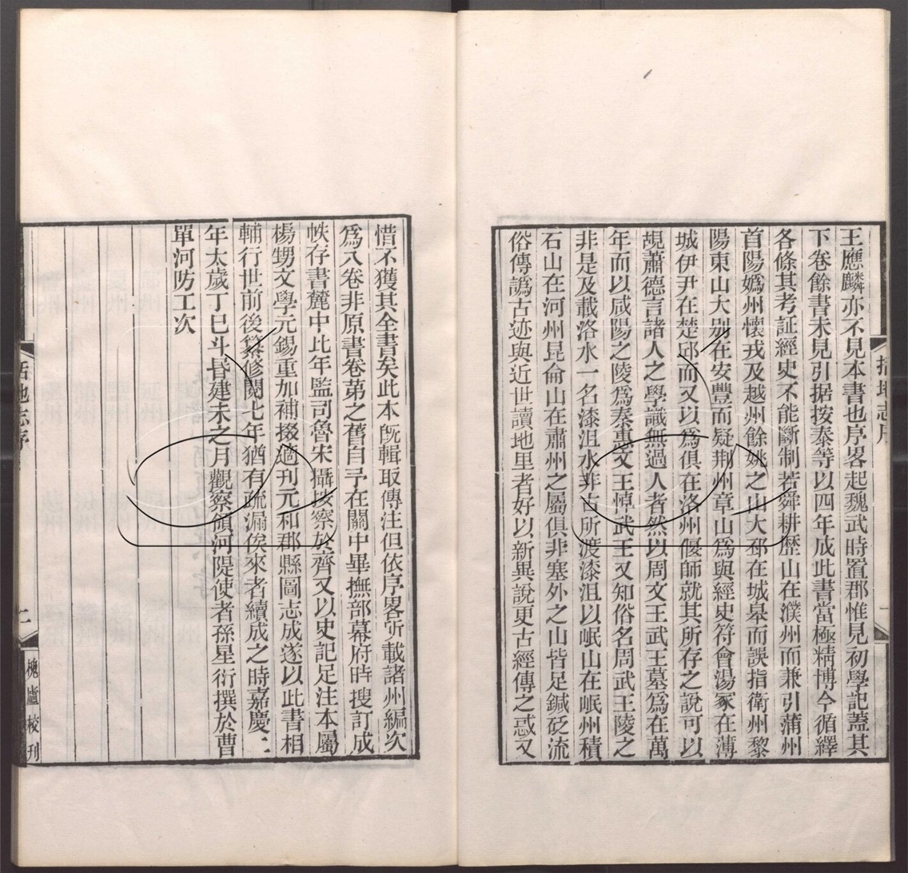 王應麟亦不見本書也序畧起魏武時置郡惟見初學記蓋其
下卷餘書未見引据按泰等以四年成此書當極精博今循繹
各條其考証經史不能斷制若舜耕歷山在濮州而兼引蒲州
首陽嬀州懷戎及越州餘姚之山大邳在城皋而誤指衛州黎
陽東山大別在安豐而疑荆州章山爲與經史符會湯冢在薄
城伊尹在楚邱而又以爲俱在洛州偃師就其所存之說可以
覘蕭德言諸人之學識無過人者然以周文王武王墓爲在萬
年而以咸陽之陵爲秦惠文王悼武王又知俗名周武王陵之
非是及載洛水一名漆沮水非古所渡漆沮以岷山在岷州積
石山在河州昆侖山在肅州之屬俱非塞外之山皆足鍼砭流
俗傳譌古迹與近世讀地里者好以新異說更古經傳之惑又
括地志序
惜不獲其全書矣此本旣輯取傳注但依序畧所載諸州編次
爲八卷非原書卷第之舊自予在關中畢撫部幕府時搜訂成
帙存書簏中比年監司魯宋攝按察於齊又以史記足注本屬
楊甥文學元錫重加補掇適刊元和郡縣圖志成遂以此書相
輔行世前後纂修閱七年猶有疏漏俟來者續成之時嘉慶二
年太歲丁巳斗昏建未之月觀察領河隄使者孫星衍撰於曹
單河防工次
括地志序
七
槐廬校刊